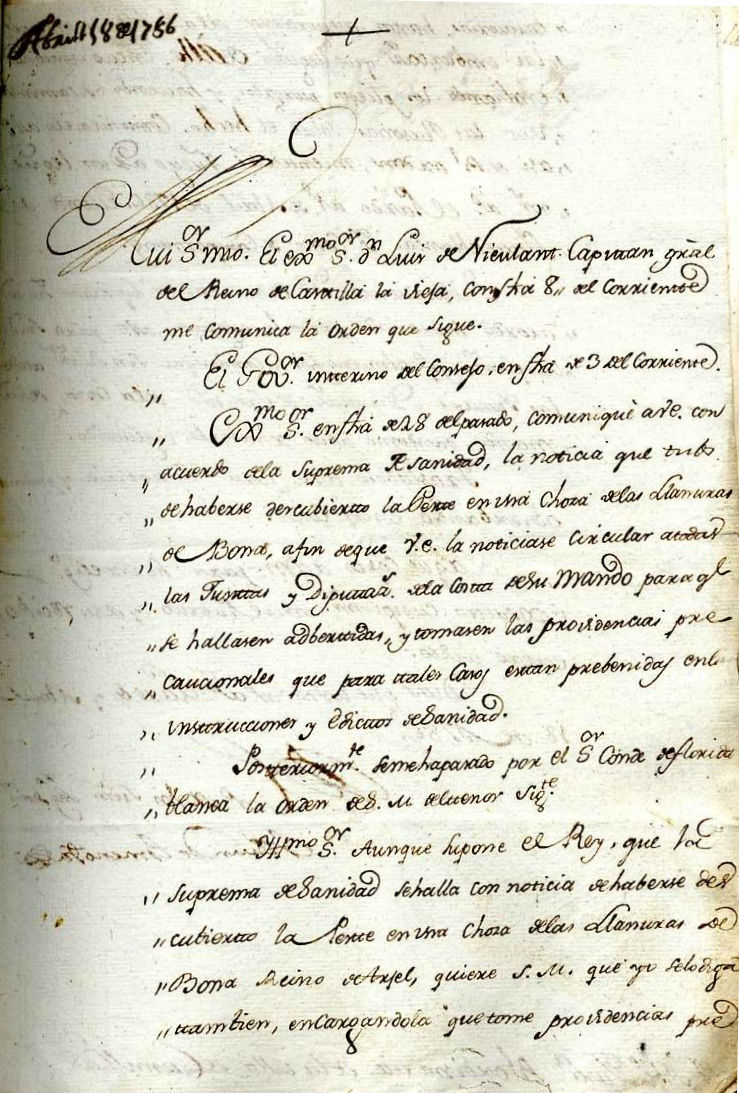 Abril 18 de 1786
Mui Sor mio. El exmo Sor. dn Luis de Nieulant. Capitan gral
del Reino de Castilla la vieja, con fha 8,, del corriente
me comunica la orden que sigue.
,, El Govor. interino del Consejo, en fha de 3 del Corriente.
,, Exmo Sor. en fha de 28 del pasado, comuniquè a v.e. con
,, acuerdo dela Suprema de sanidad, la noticia que tubo
,, de haberse descubierto la Peste en una Choza delas Llanuras
,, de Bona, afin deque v.e. la noticiase circular atodas
,, las Juntas y Diputass. dela Costa desu Mando para q.
,, se hallasen adbertidas, y tomasen las providencias pre
,, caucionales que para tales Casos estan prebenidas enlas
,, instrucciones y Edictos deSanidad.
,, Posteriormte. semehapasado por el Sor Conde deflorida
,, blanca la orden deS. M. deltenor Sigte.
,, Yllmo Sor. Aunque supone el Rey, que la
,, Suprema deSanidad sehalla con noticia dehaberse des
,, cubierto la Peste en una Choza delas Llanuras de
,, Bona Reino deArjel, quiere S. M. que yo selodiga
,, tambien, encargandola que tome providencias pre